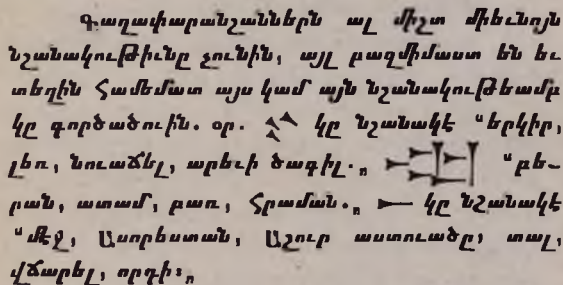 Գաղափարանշաններն ալ միշտ միեւնոյն
նշանակութիւնը չունին, այլ բազմիմաստ են եւ
տեղին համեմատ այս կամ այն նշանակութեամբ
կը գործածուին. օր. 𒆳 կը նշանակէ "երկիր,
լեռ, նուաճել, արեւի ծագիլ.„ 𒅗 "բե–
րան, ատամ, բառ, հրաման.„ 𒀸 կը նշանակէ
"մէջ, Ասորեստան, Աշուր աստուածը, տալ,
վճարել, որդի:„